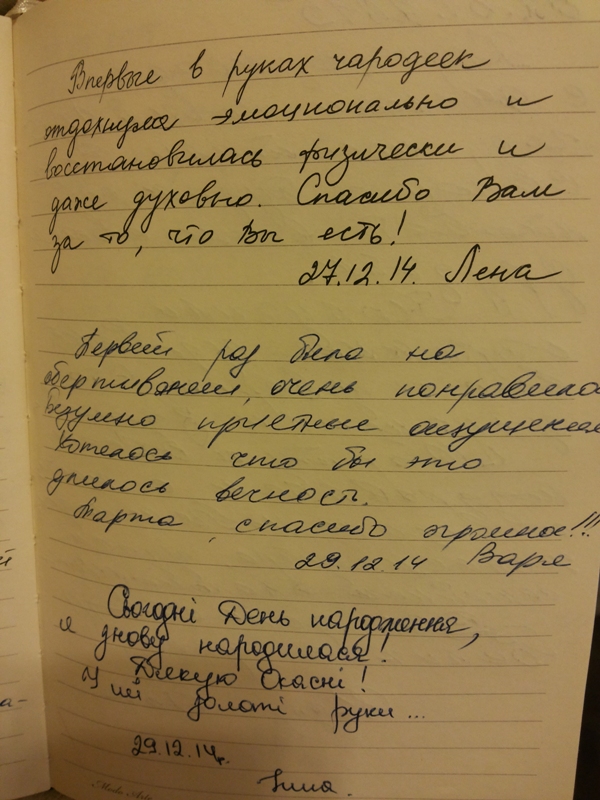 Впервые в руках чародеек
отдохнула эмоционально и
восстановилась физически и
даже духовно. Спасибо Вам
за то, что Вы есть!
27.12.14. Лена
Первый раз была на
обертывании, очень понравилось
Безумно приятные ощущения
Хотелось что бы это
длилось вечность.
Марта, спасибо огромное!!!
29.12.14 Варя
Сьогодні День народження,
я знову народилася!
Дякую Оксані!
У неї золоті руки...
29.12.14г.
Інна.